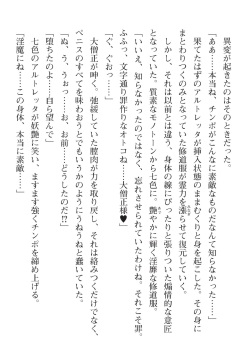 異変が起きたのはそのときだった。
「ああ……本当ね、チンポがこんなに素敵なものだなんて知らなかった……」
果てたはずのアルトレッタが挿入状態のままむくりと身を起こした。その身に
まとわりつくのみとなっていた修道服が霊力を漲らせて復元していく。
しかし、それは以前とは違う、身体の線にぴったりと張りついた煽情的な意匠
となっていた。質素なモノトーンから七色に。艶やかに輝く淫靡な修道服。
「いいえ、知らなかったのではなく、忘れさせられていたわけね。それこそ罪。
ふふっ、文字通り罪作りなオトコね……大僧正様♥」
「ぐ、ぐおっ……」
大僧正が呻く。弛緩していた膣肉が力を取り戻し、それは絡みつくだけでなく、
ペニスのすべてを味わおうとでもいうかのようにうねうねと蠢いていた。
「ぬ、う、うぉっ……お、お前……どうしたのだ!?」
「堕ちたのよ……自ら望んで」
七色のアルトレッタが妖艶に笑い、ますます強くチンポを締め上げる。
「淫魔にね……この身体、本当に素敵……」